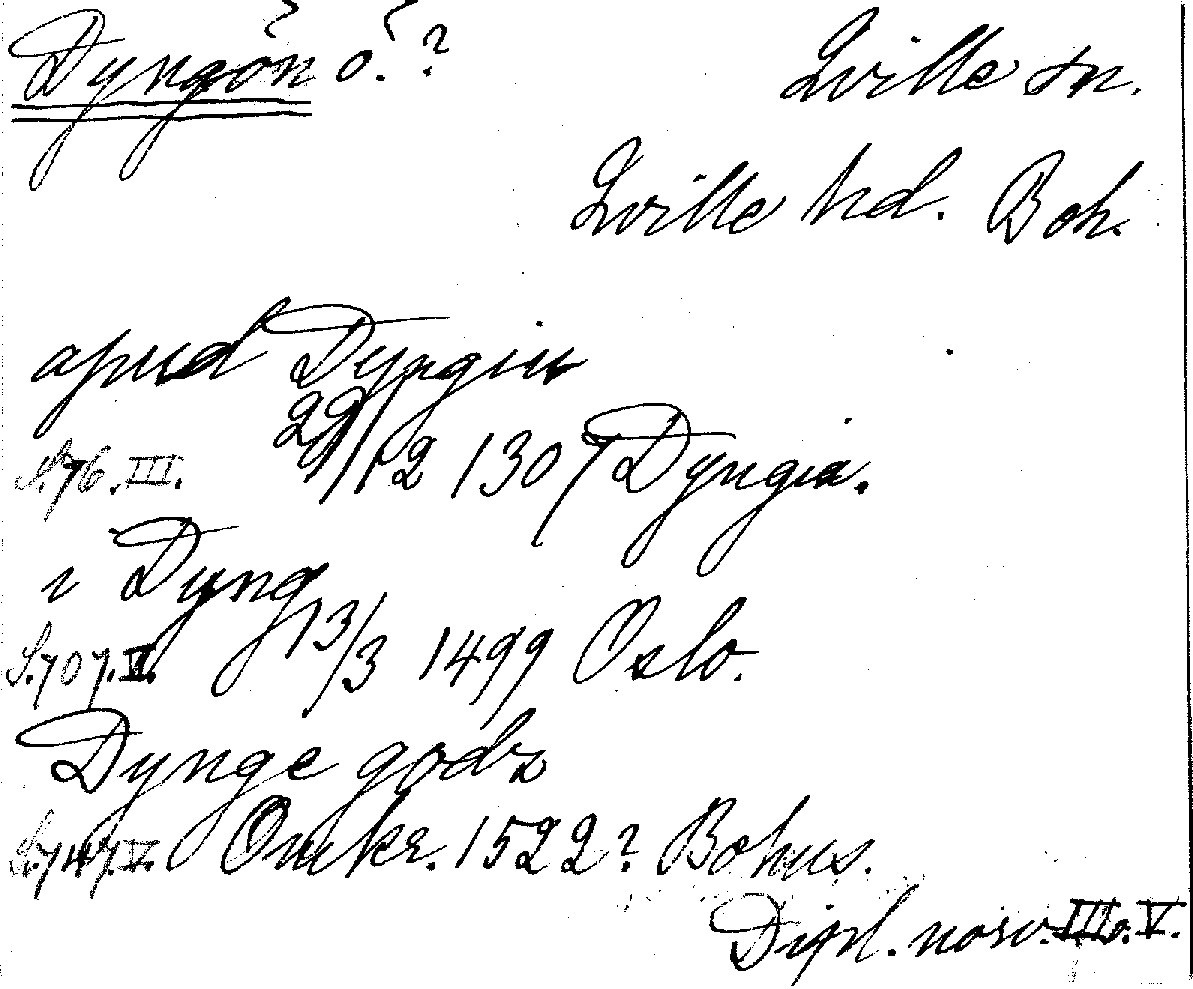 Dyngön ö. ?
Qville sn.
Qville hd. Boh.
apud Dyngiu
S. 76. III. 29/12 1307 Dyngia.
i Dyng
S. 707. V. 13/3 1499 Oslo.
Dynge godz
S. 747. V. Omkr. 1522? Bohus.
Dipl. norv. III o. V.